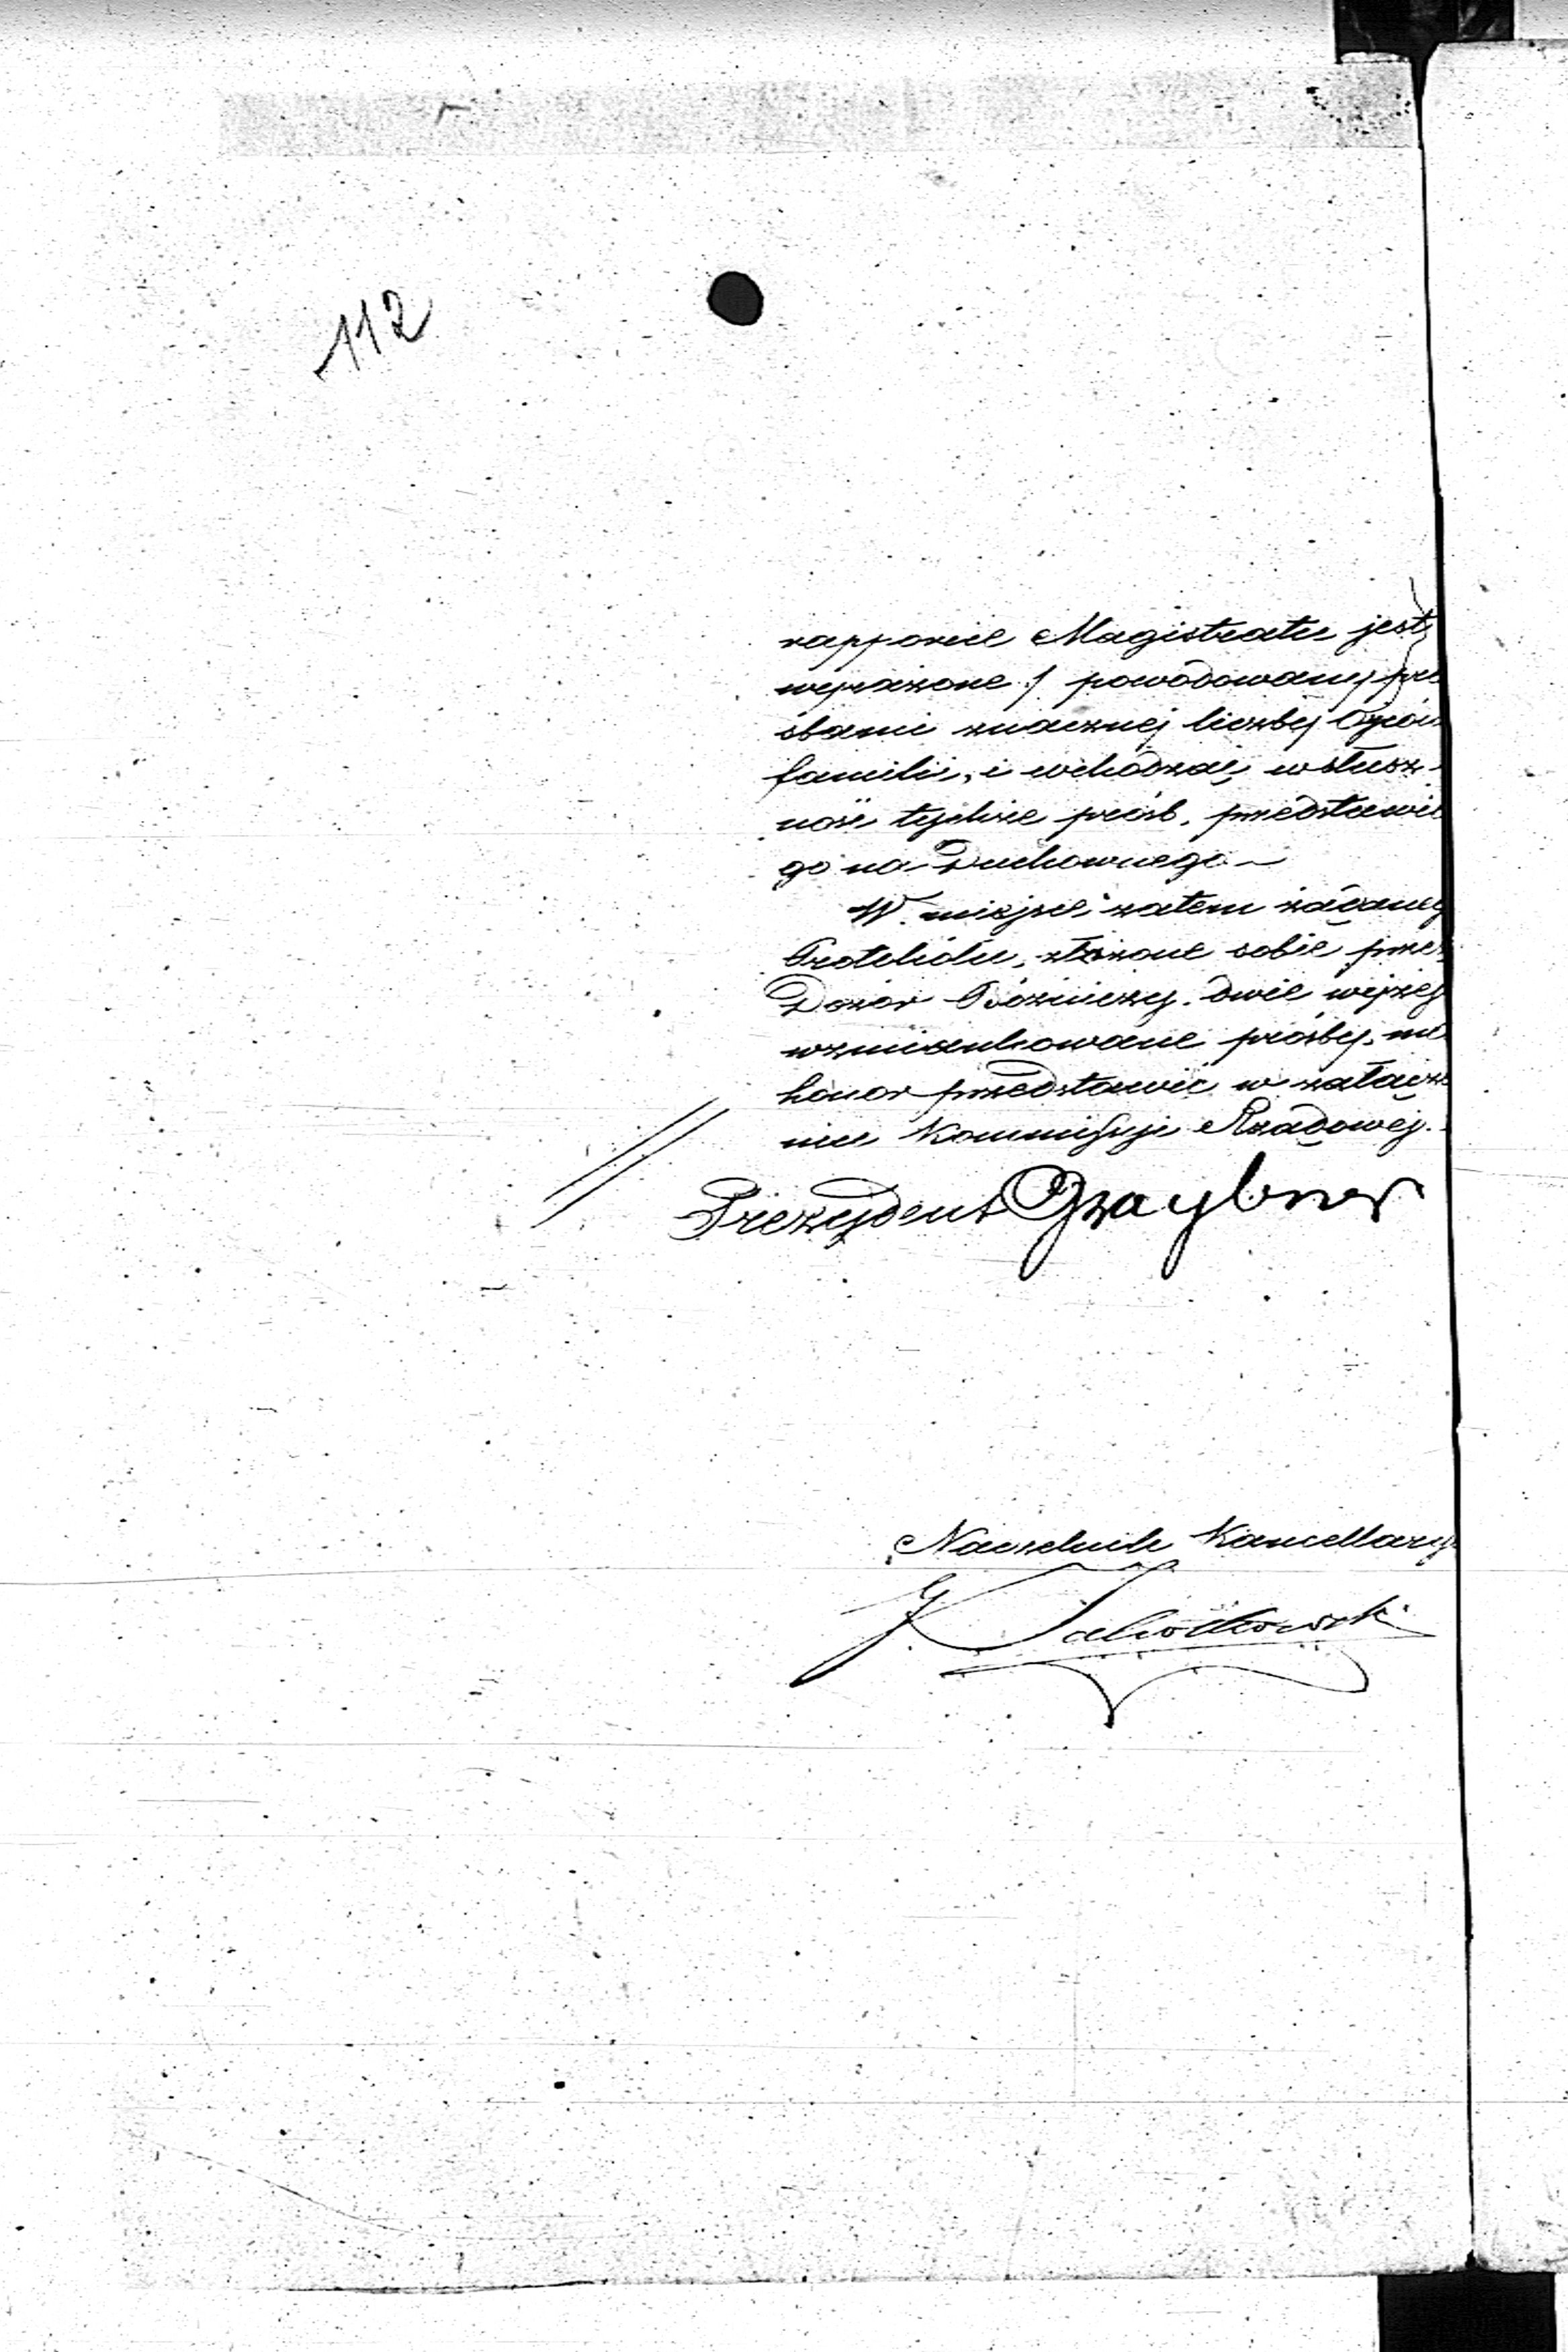 112
rapporcie Magistratu jest
wyrażone / powodowany pro
śbami znacznej liczby Ojców
familii, i wchodząc w słusz-
ność tychże próśb, przedstawił
go na Duchownego —
W miejsce zatem żądaneg
Protokółu, złożone sobie przez
Dozór Bóżniczy dwie wyżej
wzmiankowane prośby, ma
honor przedstawić w załącze
niu Kommissyi Rządowej.
Prezydent Graybner
Naczelnik Kancellaryi